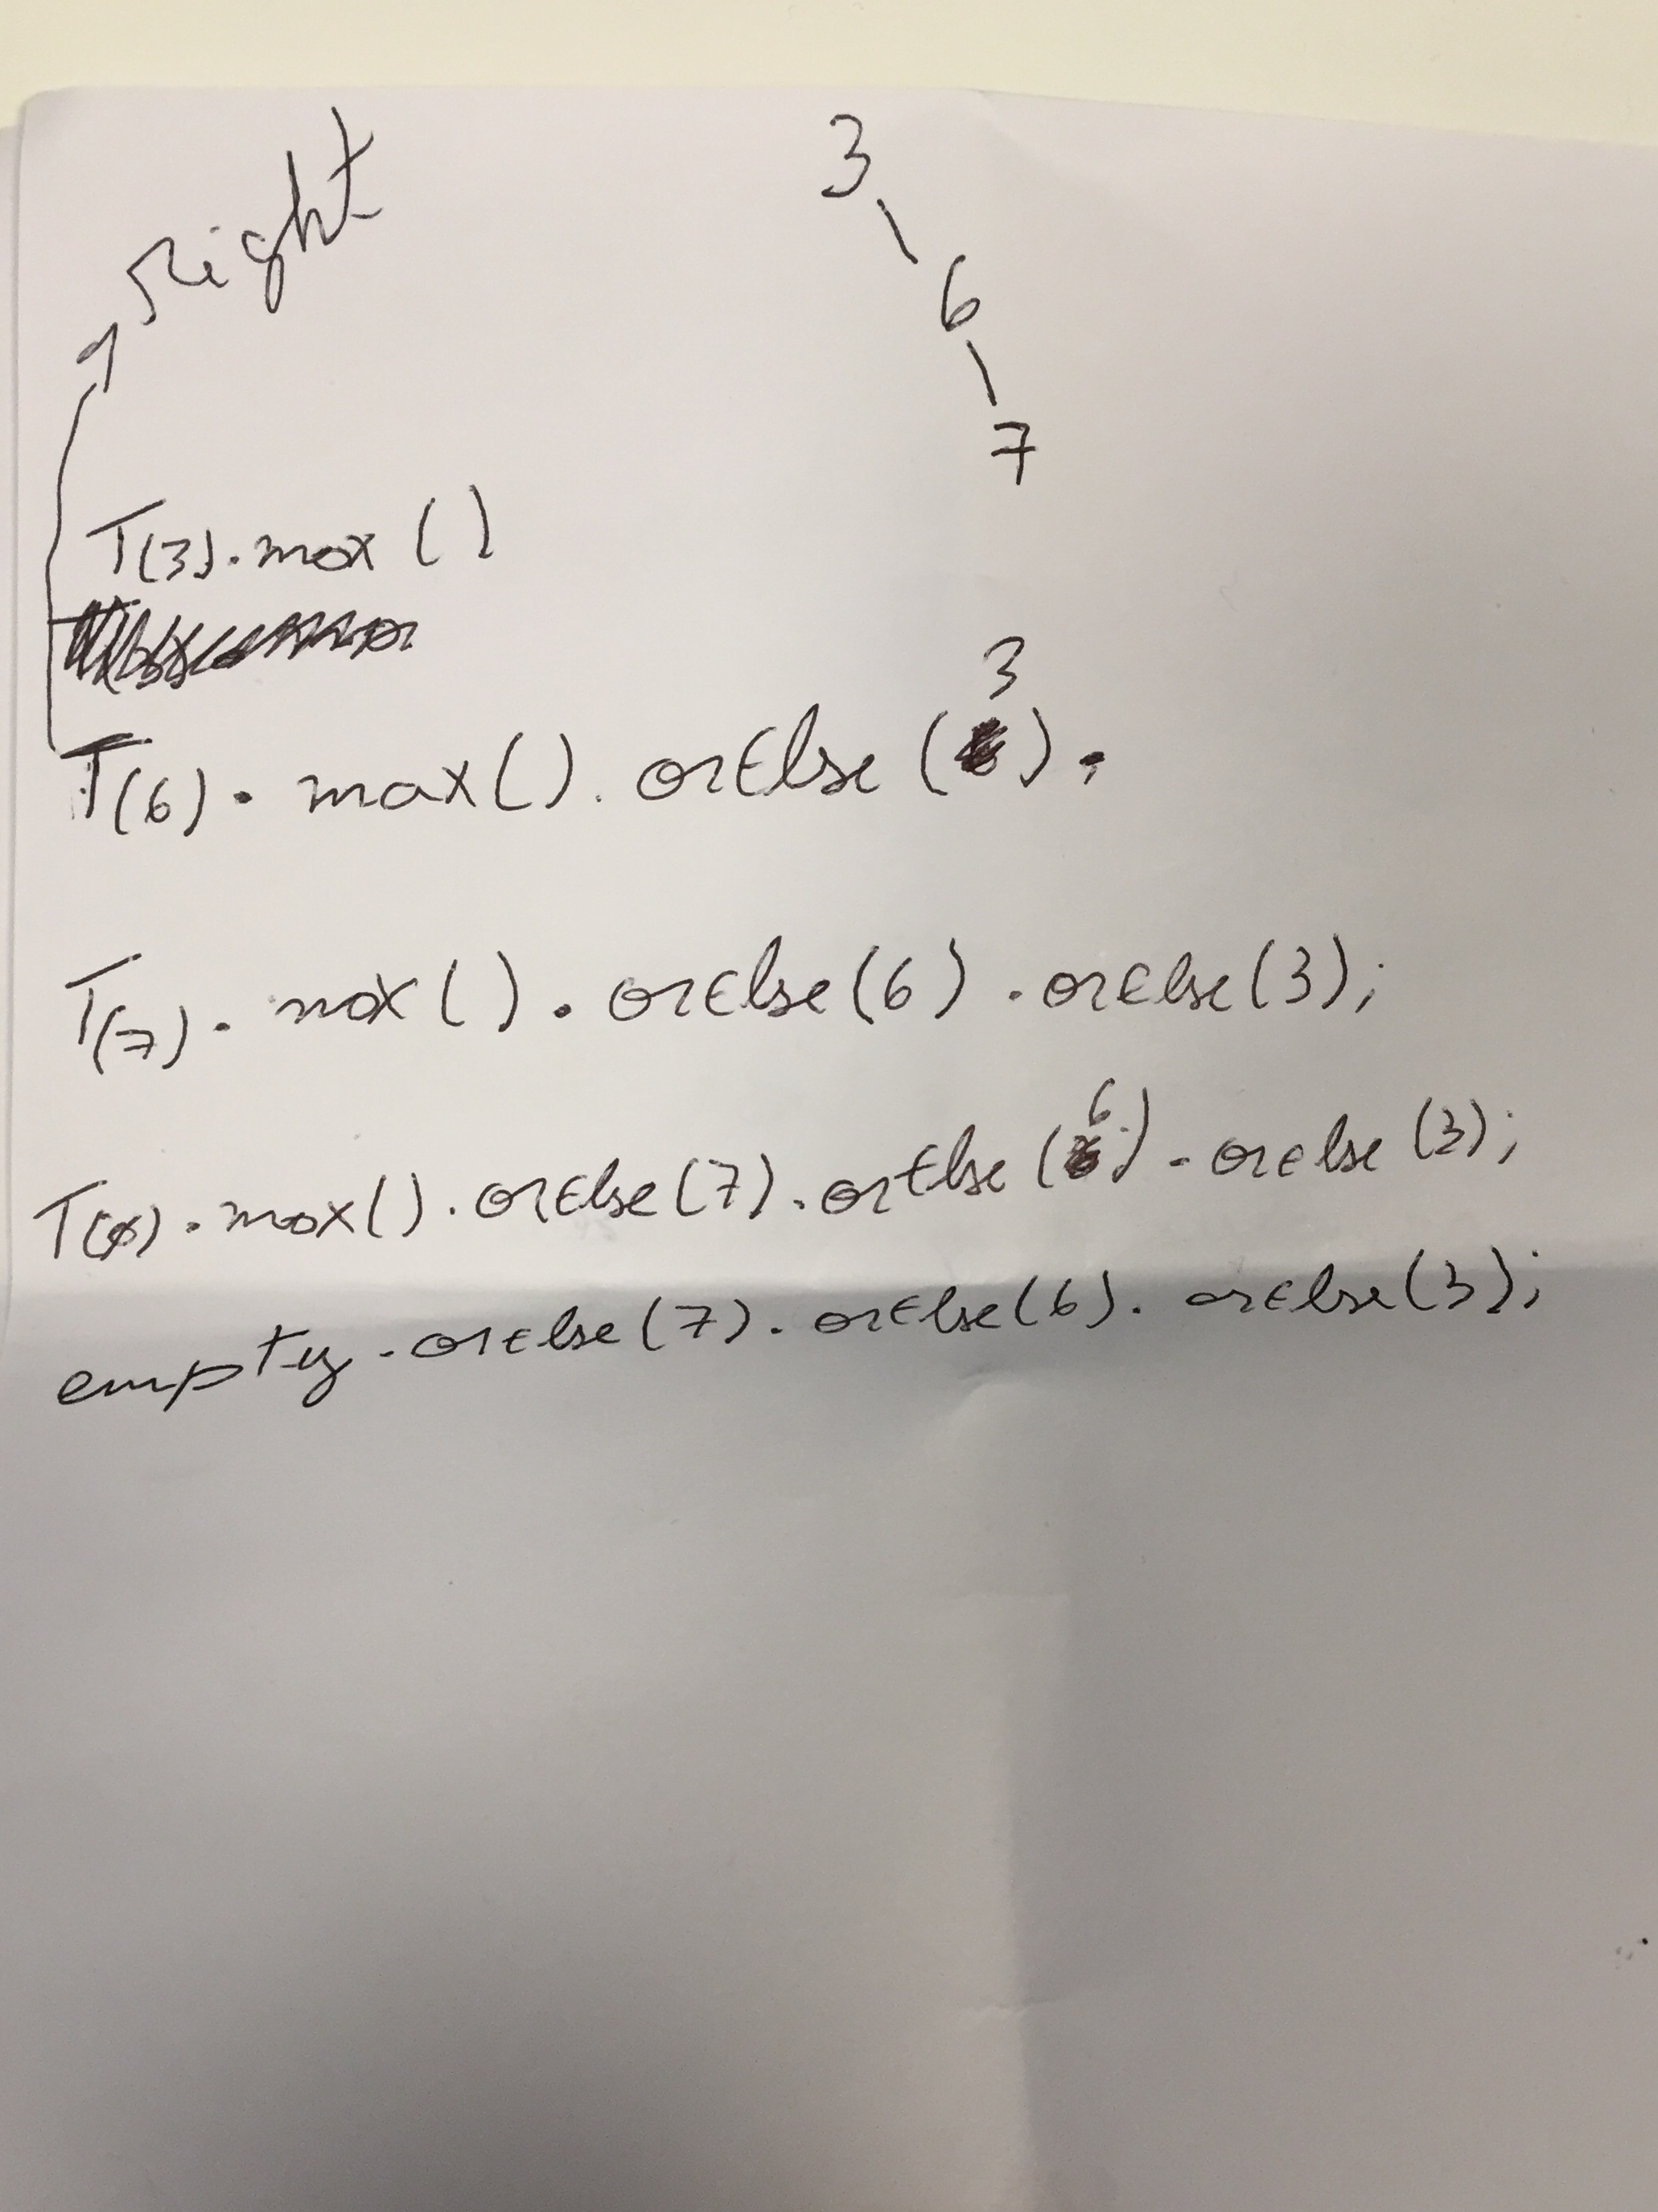 right
3
6
7
T(3).max()
3
T(6).max().orElse( ).
T(7).max().orElse(6).orElse(3);
6
T(ø).max().orElse(7).orElse( ).orelse(3);
empty.orelse(7).orElse(6).orelse(3);